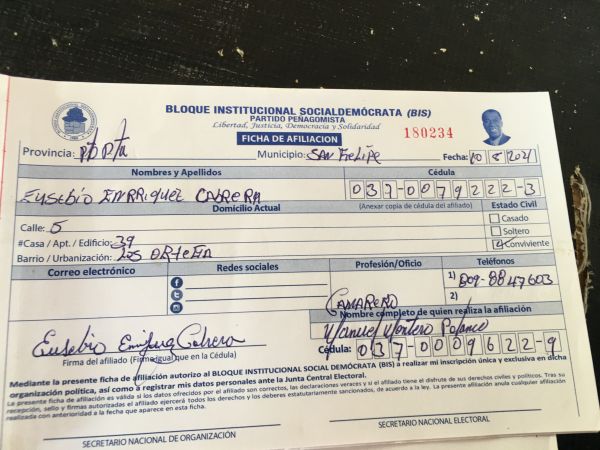 BLOQUE INSTITUCIONAL SOCIALDEMÓCRATA (BIS)
PARTIDO PEÑAGOMISTA
Libertad, Justicia, Democracia y Solidaridad
FICHA DE AFILIACION
180234
Provincia: Pto Pta Municipio: SAN FIELIPE Fecha: 10/8/2021
Nombres y Apellidos Cédula
EUSEBIO ENRRIQUEZ CABRERA 037-0079222-3
Domicilio Actual (Anexar copia de cédula del afiliado) Estado Civil
Calle: 5 Casado
#Casa / Apt. / Edificio: 39 Soltero
Barrio / Urbanización: LOS Conviviente
Correo electrónico Redes sociales Profesión/Oficio Teléfonos
1) 809-8847603
2)
CAMARERO
Nombre completo de quien realiza la afiliación
Manuel Montero Polanco
Eusebio Cabrera Cédula: 037-0009622-9
Firma del afiliado (Firme igual que en la Cédula)
Mediante la presente ficha de afiliación autorizo al BLOQUE INSTITUCIONAL SOCIAL DEMÓCRATA (BIS) a realizar mi inscripción única y exclusiva en dicha
organización política, así como a registrar mis datos personales ante la Junta Central Electoral.
La presente ficha de afiliación es válida si los datos ofrecidos por el afiliado son correctos, las declaraciones veraces y si el afiliado tiene el disfrute de sus derechos civiles y políticos. Tras su
recepción, sello y firmas autorizadas el afiliado ejercerá todos los derechos y los deberes estatutariamente sancionados, de acuerdo a la ley. La presente afiliación anula cualquier afiliación
realizada con anterioridad a la fecha que aparece en esta ficha.
SECRETARIO NACIONAL DE ORGANIZACIÓN SECRETARIO NACIONAL ELECTORAL